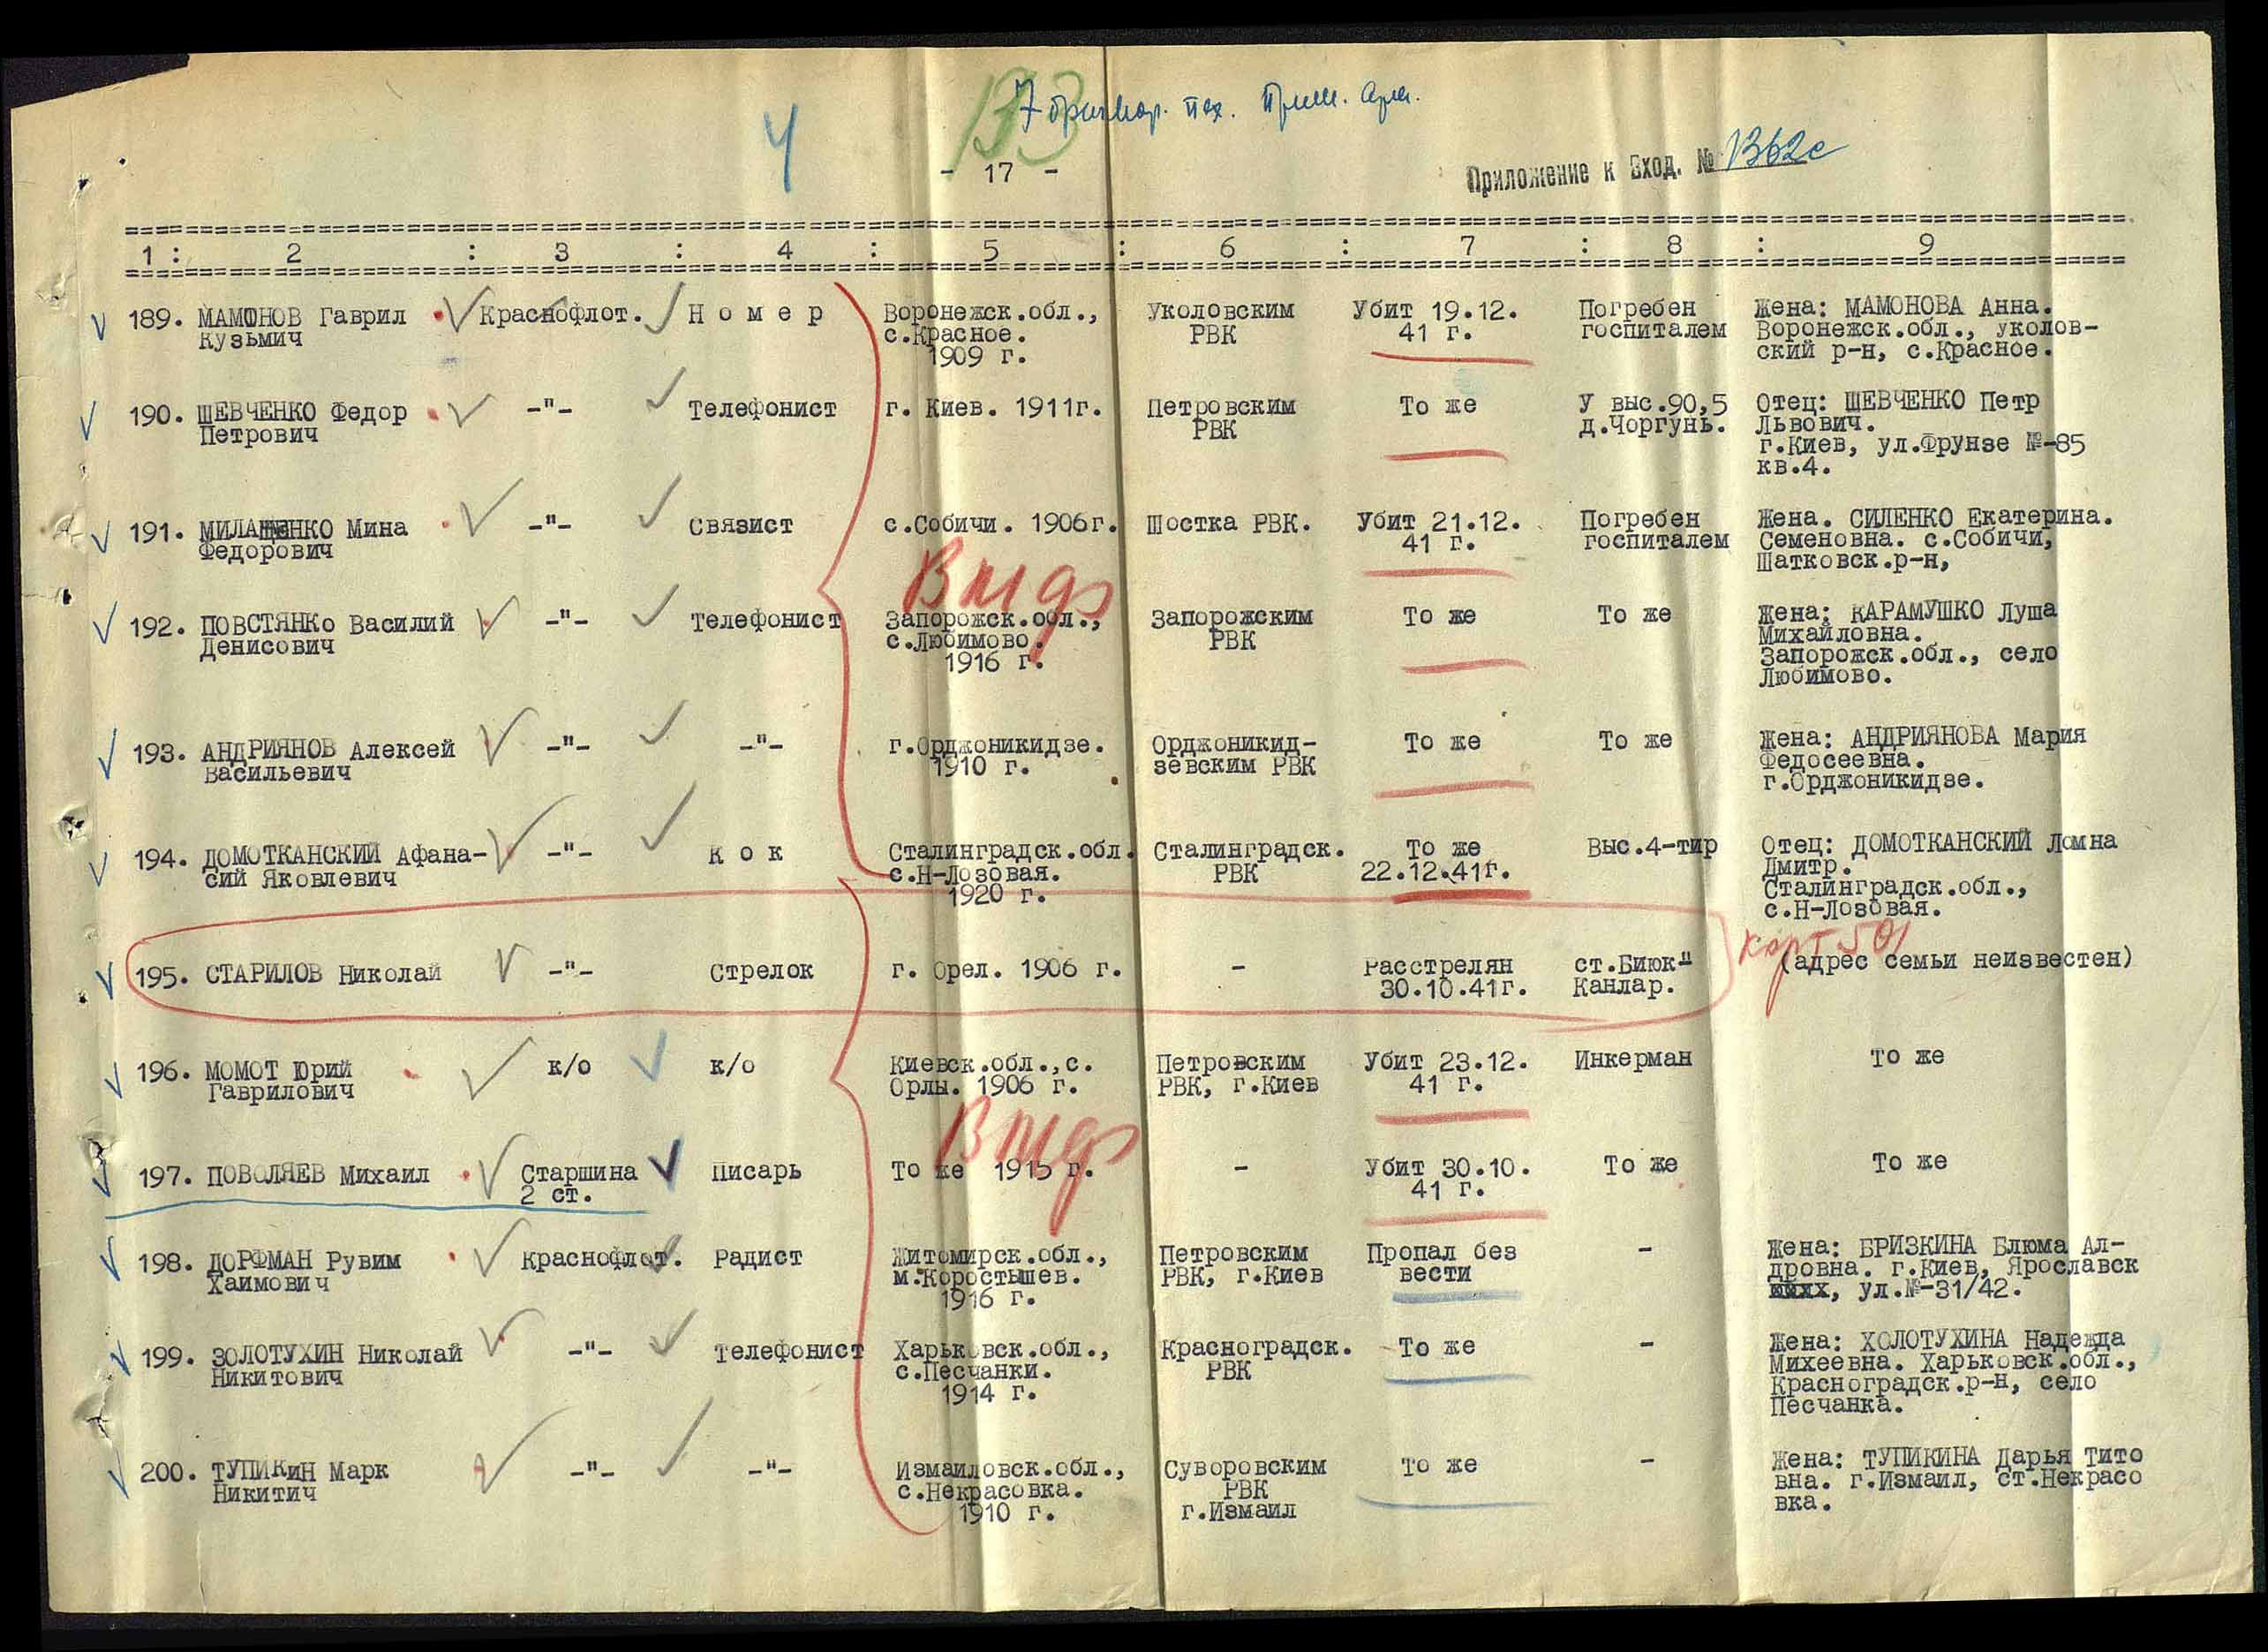 7 бриг. мор. пех. Прим. арм.
- 17 -
Приложение к Вход. № 1362с
1 : 2 : 3 : 4 : 5 : 6 : 7 : 8 : 9
189. МАМОНОВ Гаврил Краснофлот. Н о м е р Воронежск.обл., Уколовским Убит 19.12. Погребен Жена: МАМОНОВА Анна.
Кузьмич с.Красное. РВК 41 г. госпиталем Воронежск.обл., уколов-
1909 г. ский р-н, с.Красное.
190. ШЕВЧЕНКО Федор -"- Телефонист г. Киев. 1911г. Петровским То же У выс.90,5 Отец: ШЕВЧЕНКО Петр
Петрович РВК д.Чоргунь. Львович.
г.Киев, ул.Фрунзе №-85
кв.4.
191. МИЛАЩЕНКО Мина -"- Связист с.Собичи. 1906г. Шостка РВК. Убит 21.12. Погребен Жена. СИЛЕНКО Екатерина.
Федорович 41 г. госпиталем Семеновна. с.Собичи,
Шатковск.р-н,
192. ПОВСТЯНКо Василий -"- Телефонист Запорожск.обл., Запорожским То же То же Жена: КАРАМУШКО Луша
Денисович с.Любимово. РВК Михайловна.
1916 г. Запорожск.обл., село
Любимово.
193. АНДРИЯНОВ Алексей -"- -"- г.Орджоникидзе. Орджоникид- То же То же Жена: АНДРИЯНОВА Мария
Васильевич 1910 г. зевским РВК Федосеевна.
г.Орджоникидзе.
194. ДОМОТКАНСКИЙ Афана- -"- К о к Сталинградск.обл. Сталинградск. То же Выс.4-тир Отец: ДОМОТКАНСКИЙ Ломна
сий Яковлевич с.Н-Лозовая. РВК 22.12.41г. Дмитр.
1920 г. Сталинградск.обл.,
с.Н-Лозовая.
195. СТАРИЛОВ Николай -"- Стрелок г. Орел. 1906 г. - Расстрелян ст.Биюк- (адрес семьи неизвестен)
30.10.41г. Канлар.
196. МОМОТ Юрий к/о к/о Киевск.обл.,с. Петровским Убит 23.12. Инкерман То же
Гаврилович Орлы. 1906 г. РВК, г.Киев 41 г.
197. ПОВОЛЯЕВ Михаил Старшина Писарь То же 1915 г. - Убит 30.10. То же То же
2 ст. 41 г.
198. ДОРФМАН Рувим Краснофлот. Радист Житомирск.обл., Петровским Пропал без - Жена: БРИЗКИНА Блюма Ал-
Хаимович м.Коростышев. РВК, г.Киев вести дровна. г.Киев, Ярославск
1916 г. , ул.№-31/42.
199. ЗОЛОТУХИН Николай -"- Телефонист Харьковск.обл., Красноградск. То же - Жена: ХОЛОТУХИНА Надежда
Никитович с.Песчанки. РВК Михеевна. Харьковск.обл.,
1914 г. Красноградск.р-н, село
Песчанка.
200. ТУПИКиН Марк -"- -"- Измаиловск.обл., Суворовским То же - Жена: ТУПИКИНА Дарья Тито
Никитич с.Некрасовка. РВК вна. г.Измаил, ст.Некрасо
1910 г. г.Измаил вка.